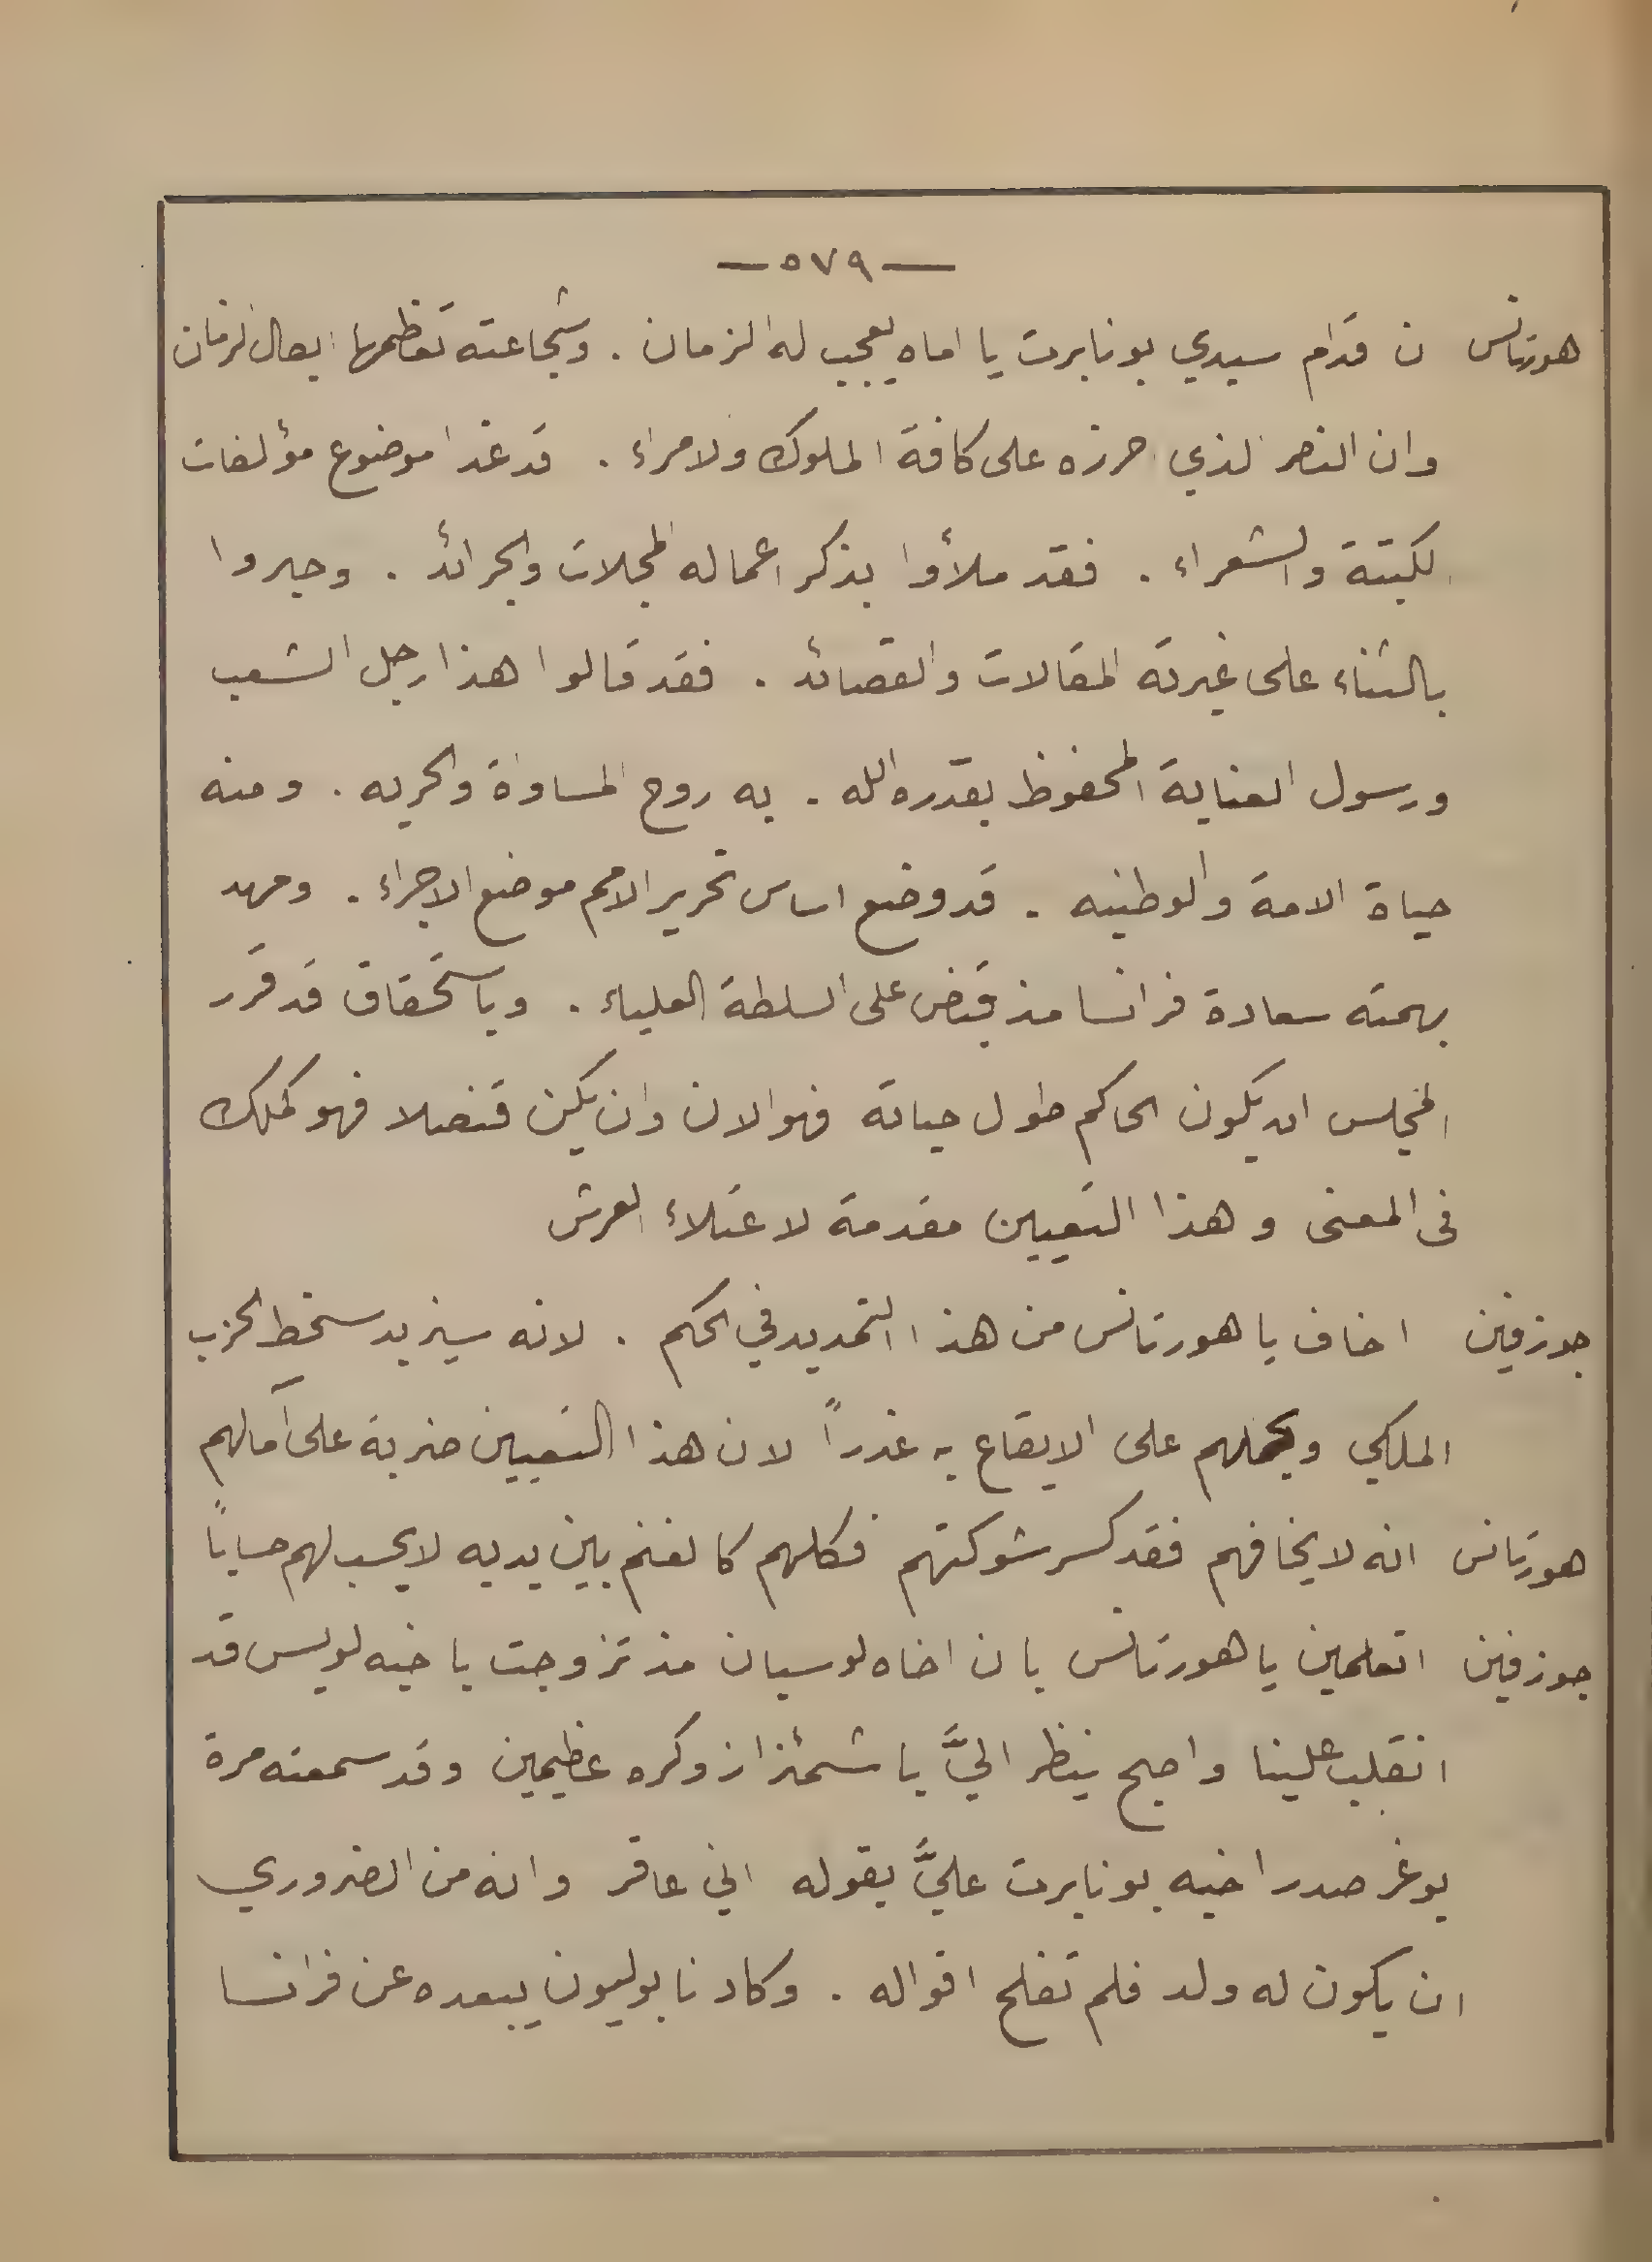 —٥٧٩—
هورتانس ن قدام سيدي بونابرت يا اماه يعجب له الزمان . وشجاعته تعظمها ابطال الزمان
وان النصر الذي احرزه على كافة الملوك ولامراء . قد غدا موضوع مؤلفات
الكتبة والشعراء . فقد ملأوا بذكر اعماله المجلات والجرائد . وحبروا
بالثناء على غيرته المقالات والقصائد . فقد قالوا هذا رجل الشعب
ورسول العناية المحفوظ بقدره الله . به روح المساواة والحريه . ومنه
حياة الامة والوطنيه . قد وضع اساس تحرير الامم موضع الاجراء . ومهد
بهمته سعادة فرانسا مذ قبض على السلطة العلياء . وباستحقاق قد قرر
المجلس ان يكون الحاكم طول حياته فهو الان وان يكن قنصلا فهو كملك
في المعنى وهذا التعيين مقدمة لاعتلاء العرش
جوزفين اخاف يا هورتانس من هذا التمديد في الحكم . لانه سيزيد سخط الحزب
الملكي ويحملهم على الايقاع به غدراً لان هذا التعيين ضربة على آمالهم
هورتانس انه لا يخافهم فقد كسر شوكتهم فكلهم كالغنم بين يديه لا يحسب لهم حساباً
جوزفين اتعلمين يا هورتانس بان اخاه لوسيان مذ تزوجت باخيه لويس قد
انقلب علينا واصبح ينظر اليَّ باشمئزاز وكره عظيمين وقد سمعته مرة
يوغر صدر اخيه بونابرت عليَّ بقوله اني عاقر وانه من الضروري
ان يكون له ولد فلم تفلح اقواله . وكاد نابوليون يبعده عن فرانسا